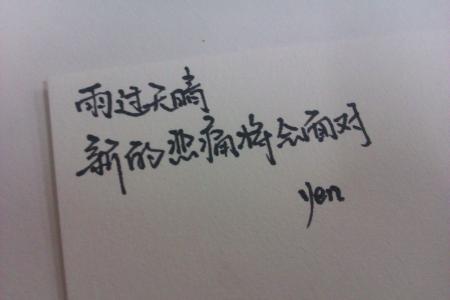 雨过天晴
新的悲痛将会面对
yen